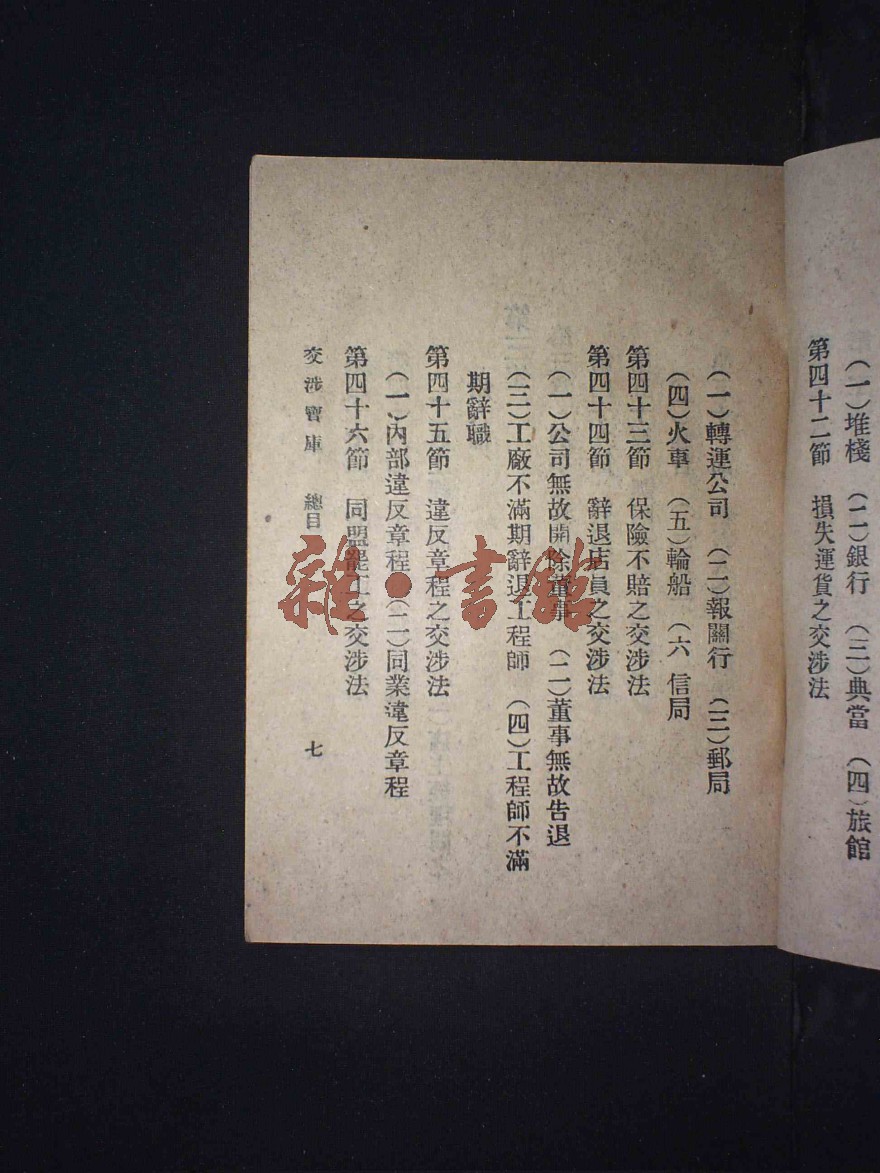 （一）堆棧　（二）銀行　（三）典當　（四）旅館
第四十二節　損失運貨之交涉法
（一）轉運公司　（二）報關行　（三）郵局
（四）火車　（五）輪船　（六 信局
第四十三節　保險不賠之交涉法
第四十四節　辭退店員之交涉法
（一）公司無故開除董事　（二）董事無故告退
（三）工廠不滿期辭退工程師　（四）工程師不滿
期辭職
第四十五節　違反章程之交涉法
（一）內部違反章程　（二）同業違反章程
第四十六節　同盟罷工之交涉法
交涉寶庫　總目
七
雜·書館